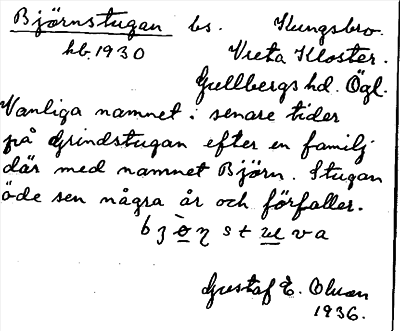 Björnstugan bs. Kungsbro.
hb. 1930 Vreta Kloster.
Gullbergs hd. Ögl.
Vanliga namnet i senare tider
på Grindstugan efter en familj
där med namnet Björn. Stugan
öde sen några år och förfaller.
Gustaf E. Olson
1936.